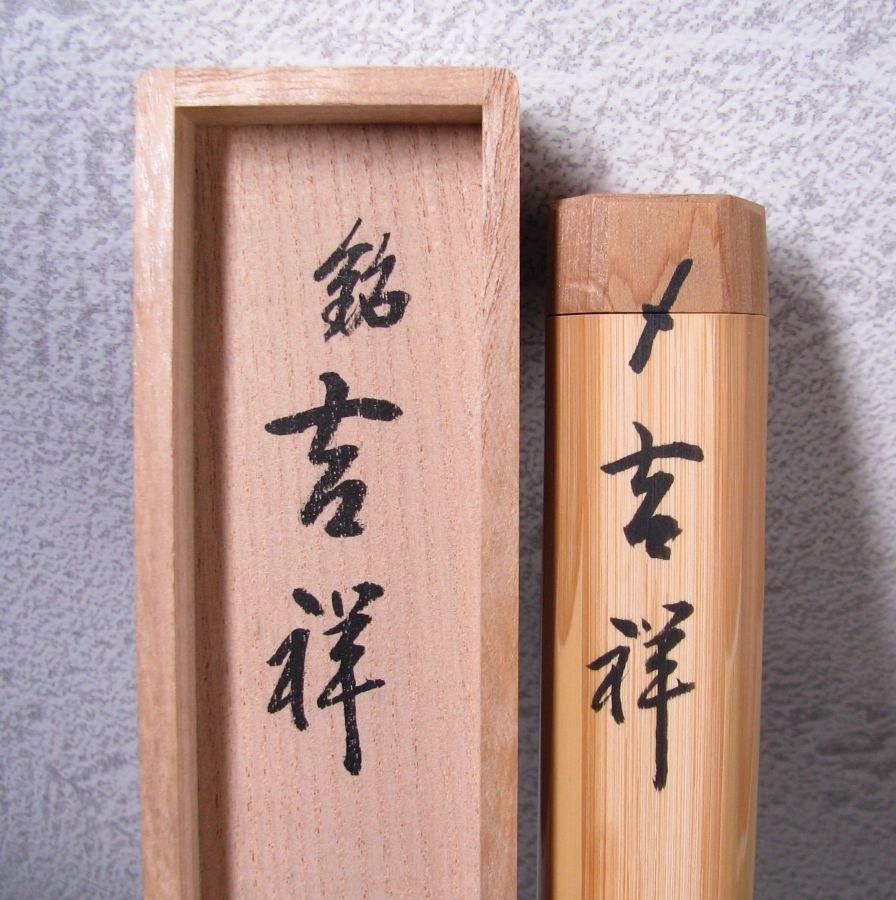 銘 吉祥
〆 吉祥